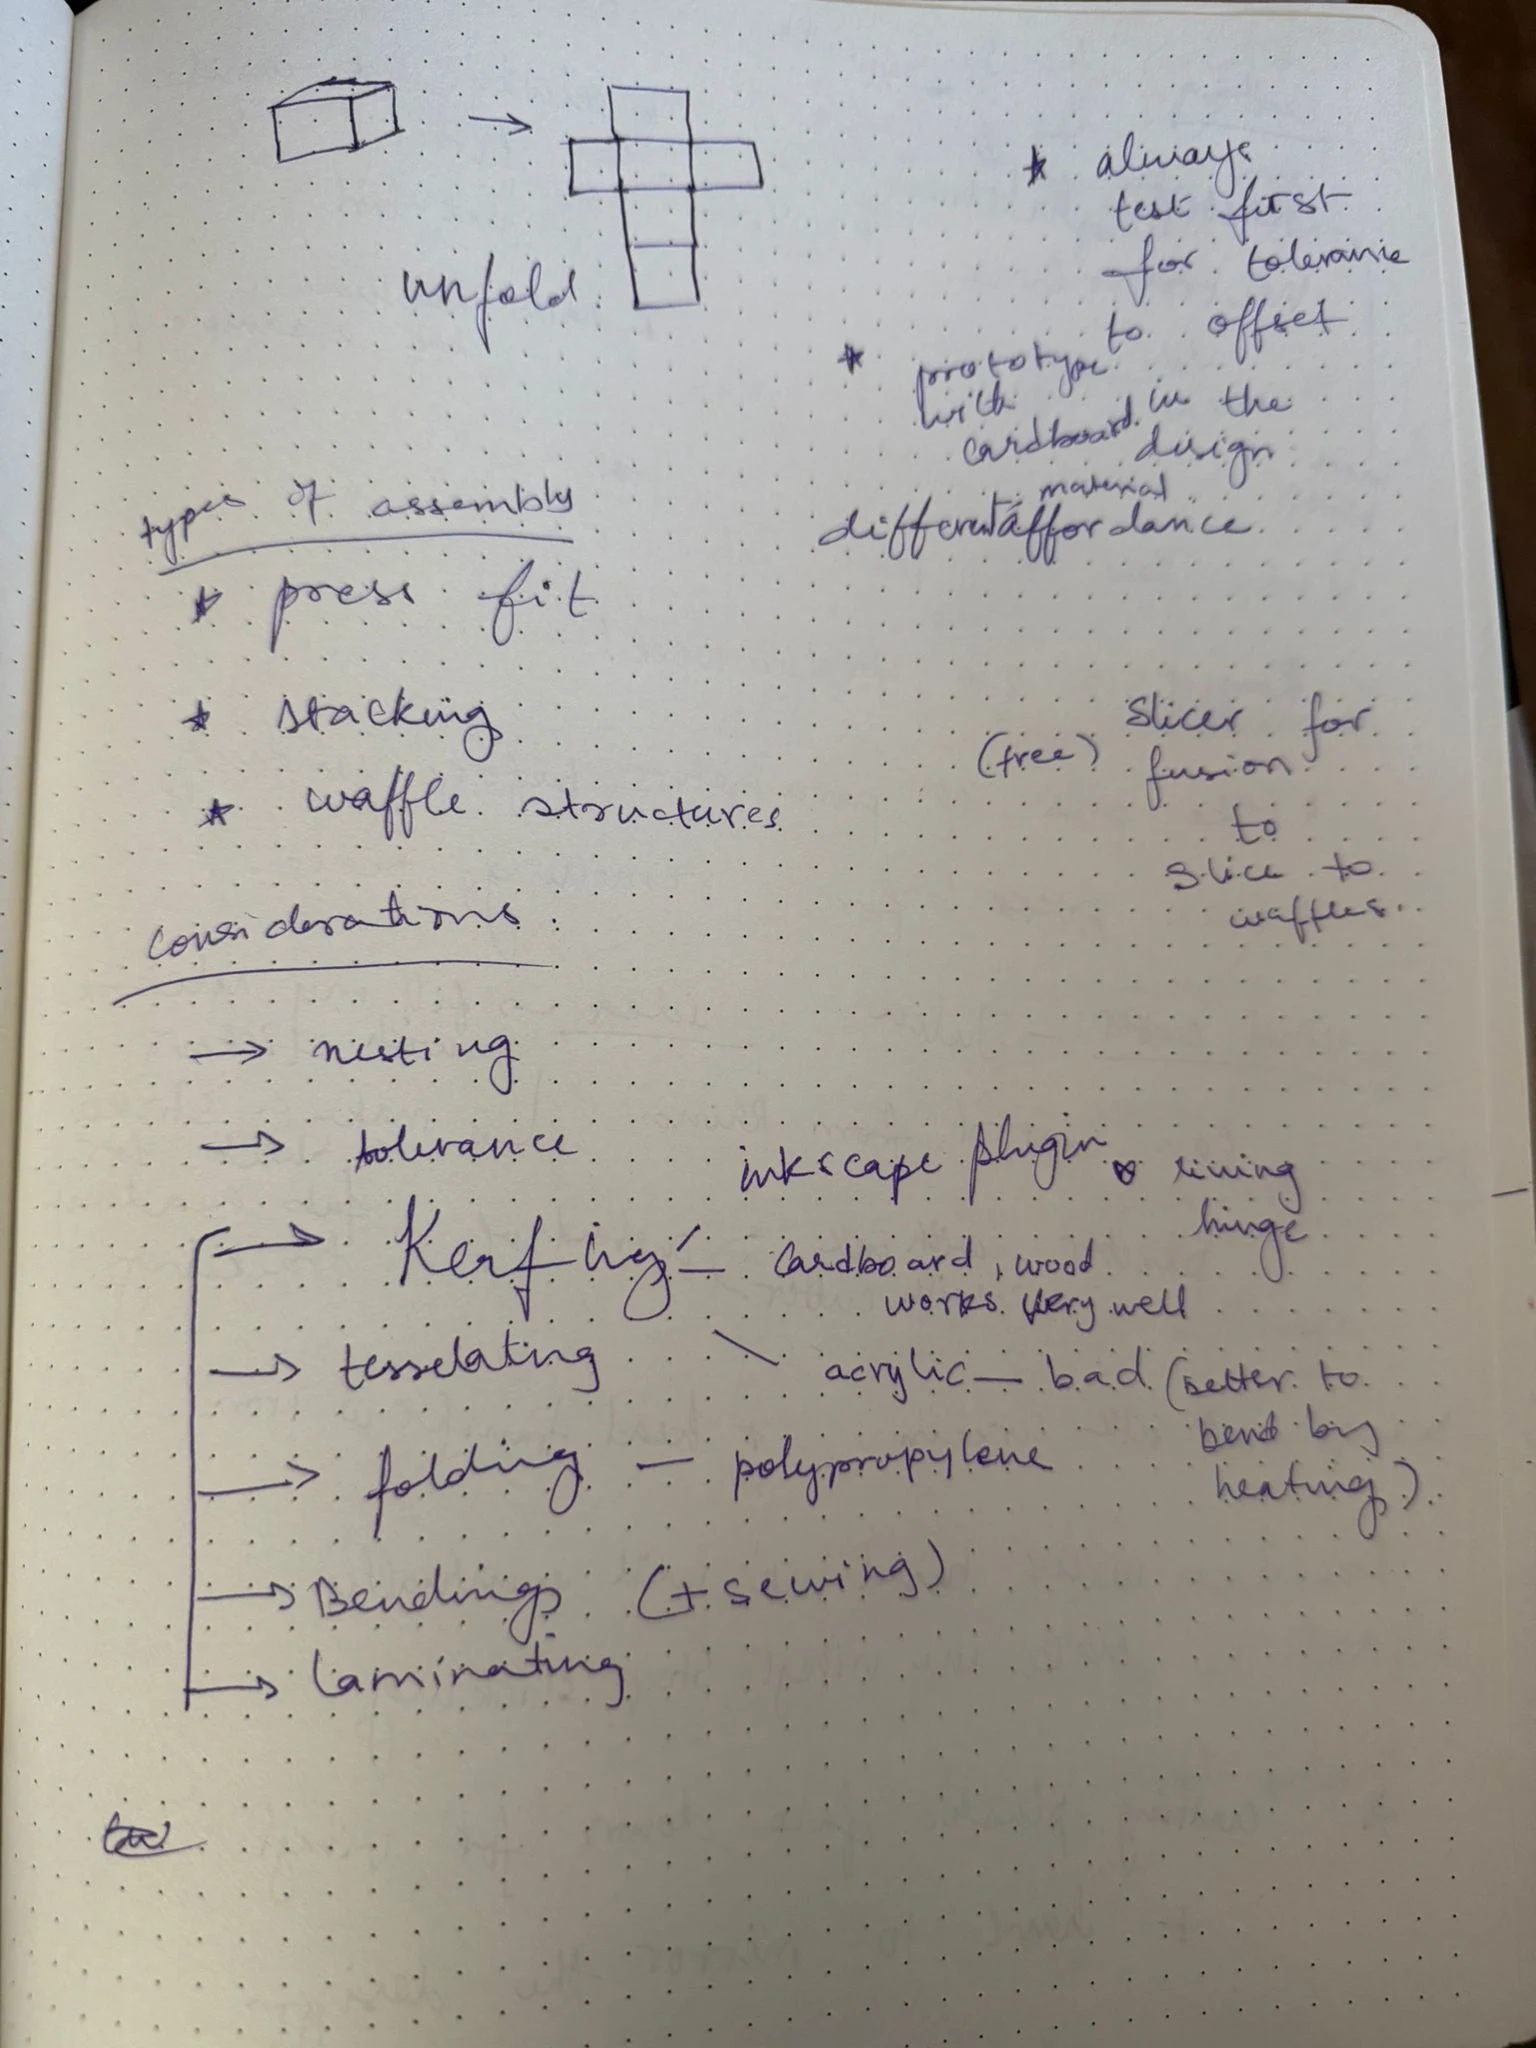 unfold
* always
test first
for tolerance
to offset
in the
design
* prototype
with
cardboard
different material affordance
types of assembly
* press fit
* stacking
* waffle structures
(free) slicer for
fusion
to
slice to
waffles.
considerations
→ nesting
→ tolerance
inkscape plugin living
hinge
→ Kerfing — cardboard, wood
works very well
→ tesselating
acrylic — bad (better to
bend by
heating)
→ folding — polypropylene
→ Bendings (+ sewing)
→ laminating